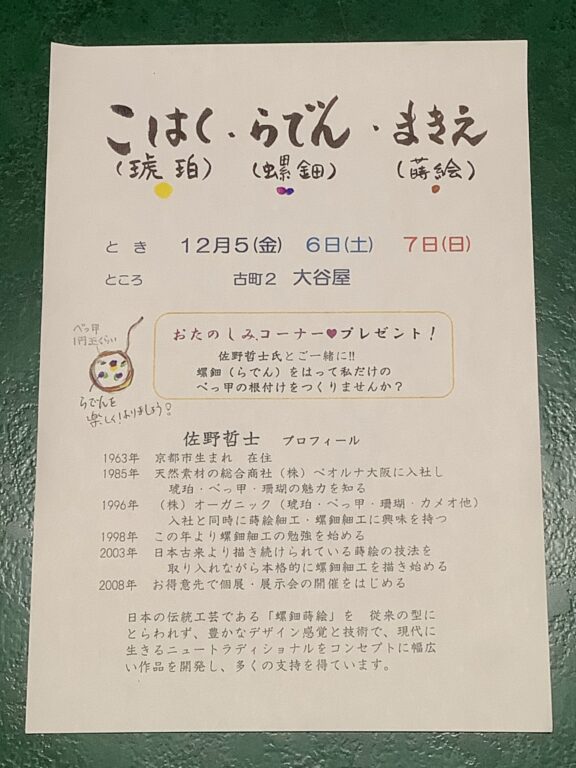 こはく・らでん・まきえ
(琥珀) (螺鈿) (蒔絵)
とき 12月5(金) 6日(土) 7日(日)
ところ 古町2 大谷屋
おたのしみコーナー♥プレゼント!
佐野哲士氏とご一緒に!!
螺鈿(らでん)をはって私だけの
べっ甲の根付けをつくりませんか?
べっ甲
1円玉くらい
らでんを
楽しくはりましょう!
佐野哲士 プロフィール
1963年 京都市生まれ 在住
1985年 天然素材の総合商社(株)ベオルナ大阪に入社し
琥珀・べっ甲・珊瑚の魅力を知る
1996年 (株)オーガニック(琥珀・べっ甲・珊瑚・カメオ他)
入社と同時に蒔絵細工・螺鈿細工に興味を持つ
1998年 この年より螺鈿細工の勉強を始める
2003年 日本古来より描き続けられている蒔絵の技法を
取り入れながら本格的に螺鈿細工を描き始める
2008年 お得意先で個展・展示会の開催をはじめる
日本の伝統工芸である「螺鈿蒔絵」を 従来の型に
とらわれず、豊かなデザイン感覚と技術で、現代に
生きるニュートラディショナルをコンセプトに幅広
い作品を開発し、多くの支持を得ています。